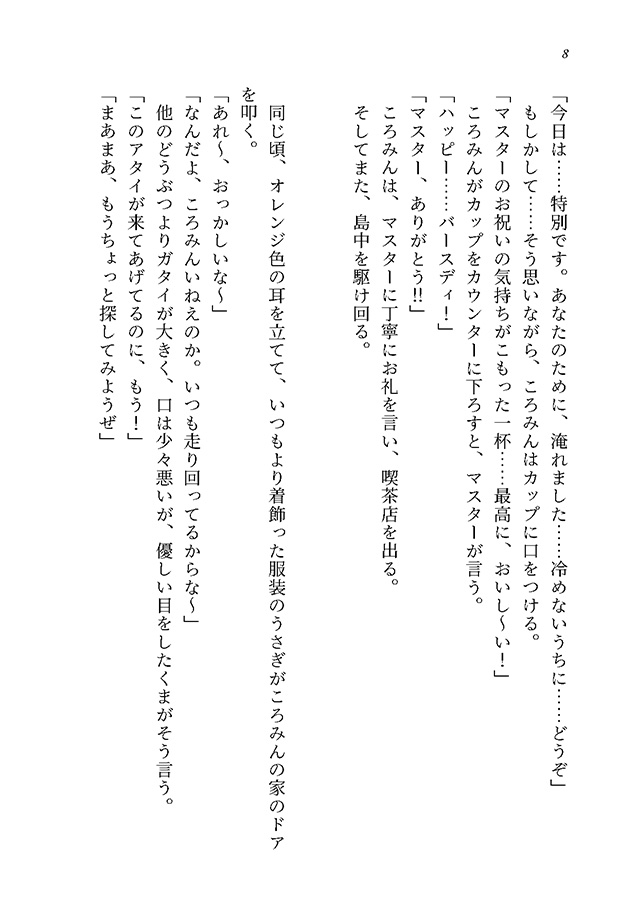 8
「今日は……特別です。あなたのために、淹れました……冷めないうちに……どうぞ」
もしかして……そう思いながら、ころみんはカップに口をつける。
「マスターのお祝いの気持ちがこもった一杯……最高に、おいし〜い！」
ころみんがカップをカウンターに下ろすと、マスターが言う。
「ハッピー……バースディ！」
「マスター、ありがとう!!」
ころみんは、マスターに丁寧にお礼を言い、喫茶店を出る。
そしてまた、島中を駆け回る。
同じ頃、オレンジ色の耳を立てて、いつもより着飾った服装のうさぎがころみんの家のドア
を叩く。
「あれ〜、おっかしいな〜」
「なんだよ、ころみんいねえのか。いつも走り回ってるからな〜」
他のどうぶつよりガタイが大きく、口は少々悪いが、優しい目をしたくまがそう言う。
「このアタイが来てあげてるのに、もう！」
「まあまあ、もうちょっと探してみようぜ」